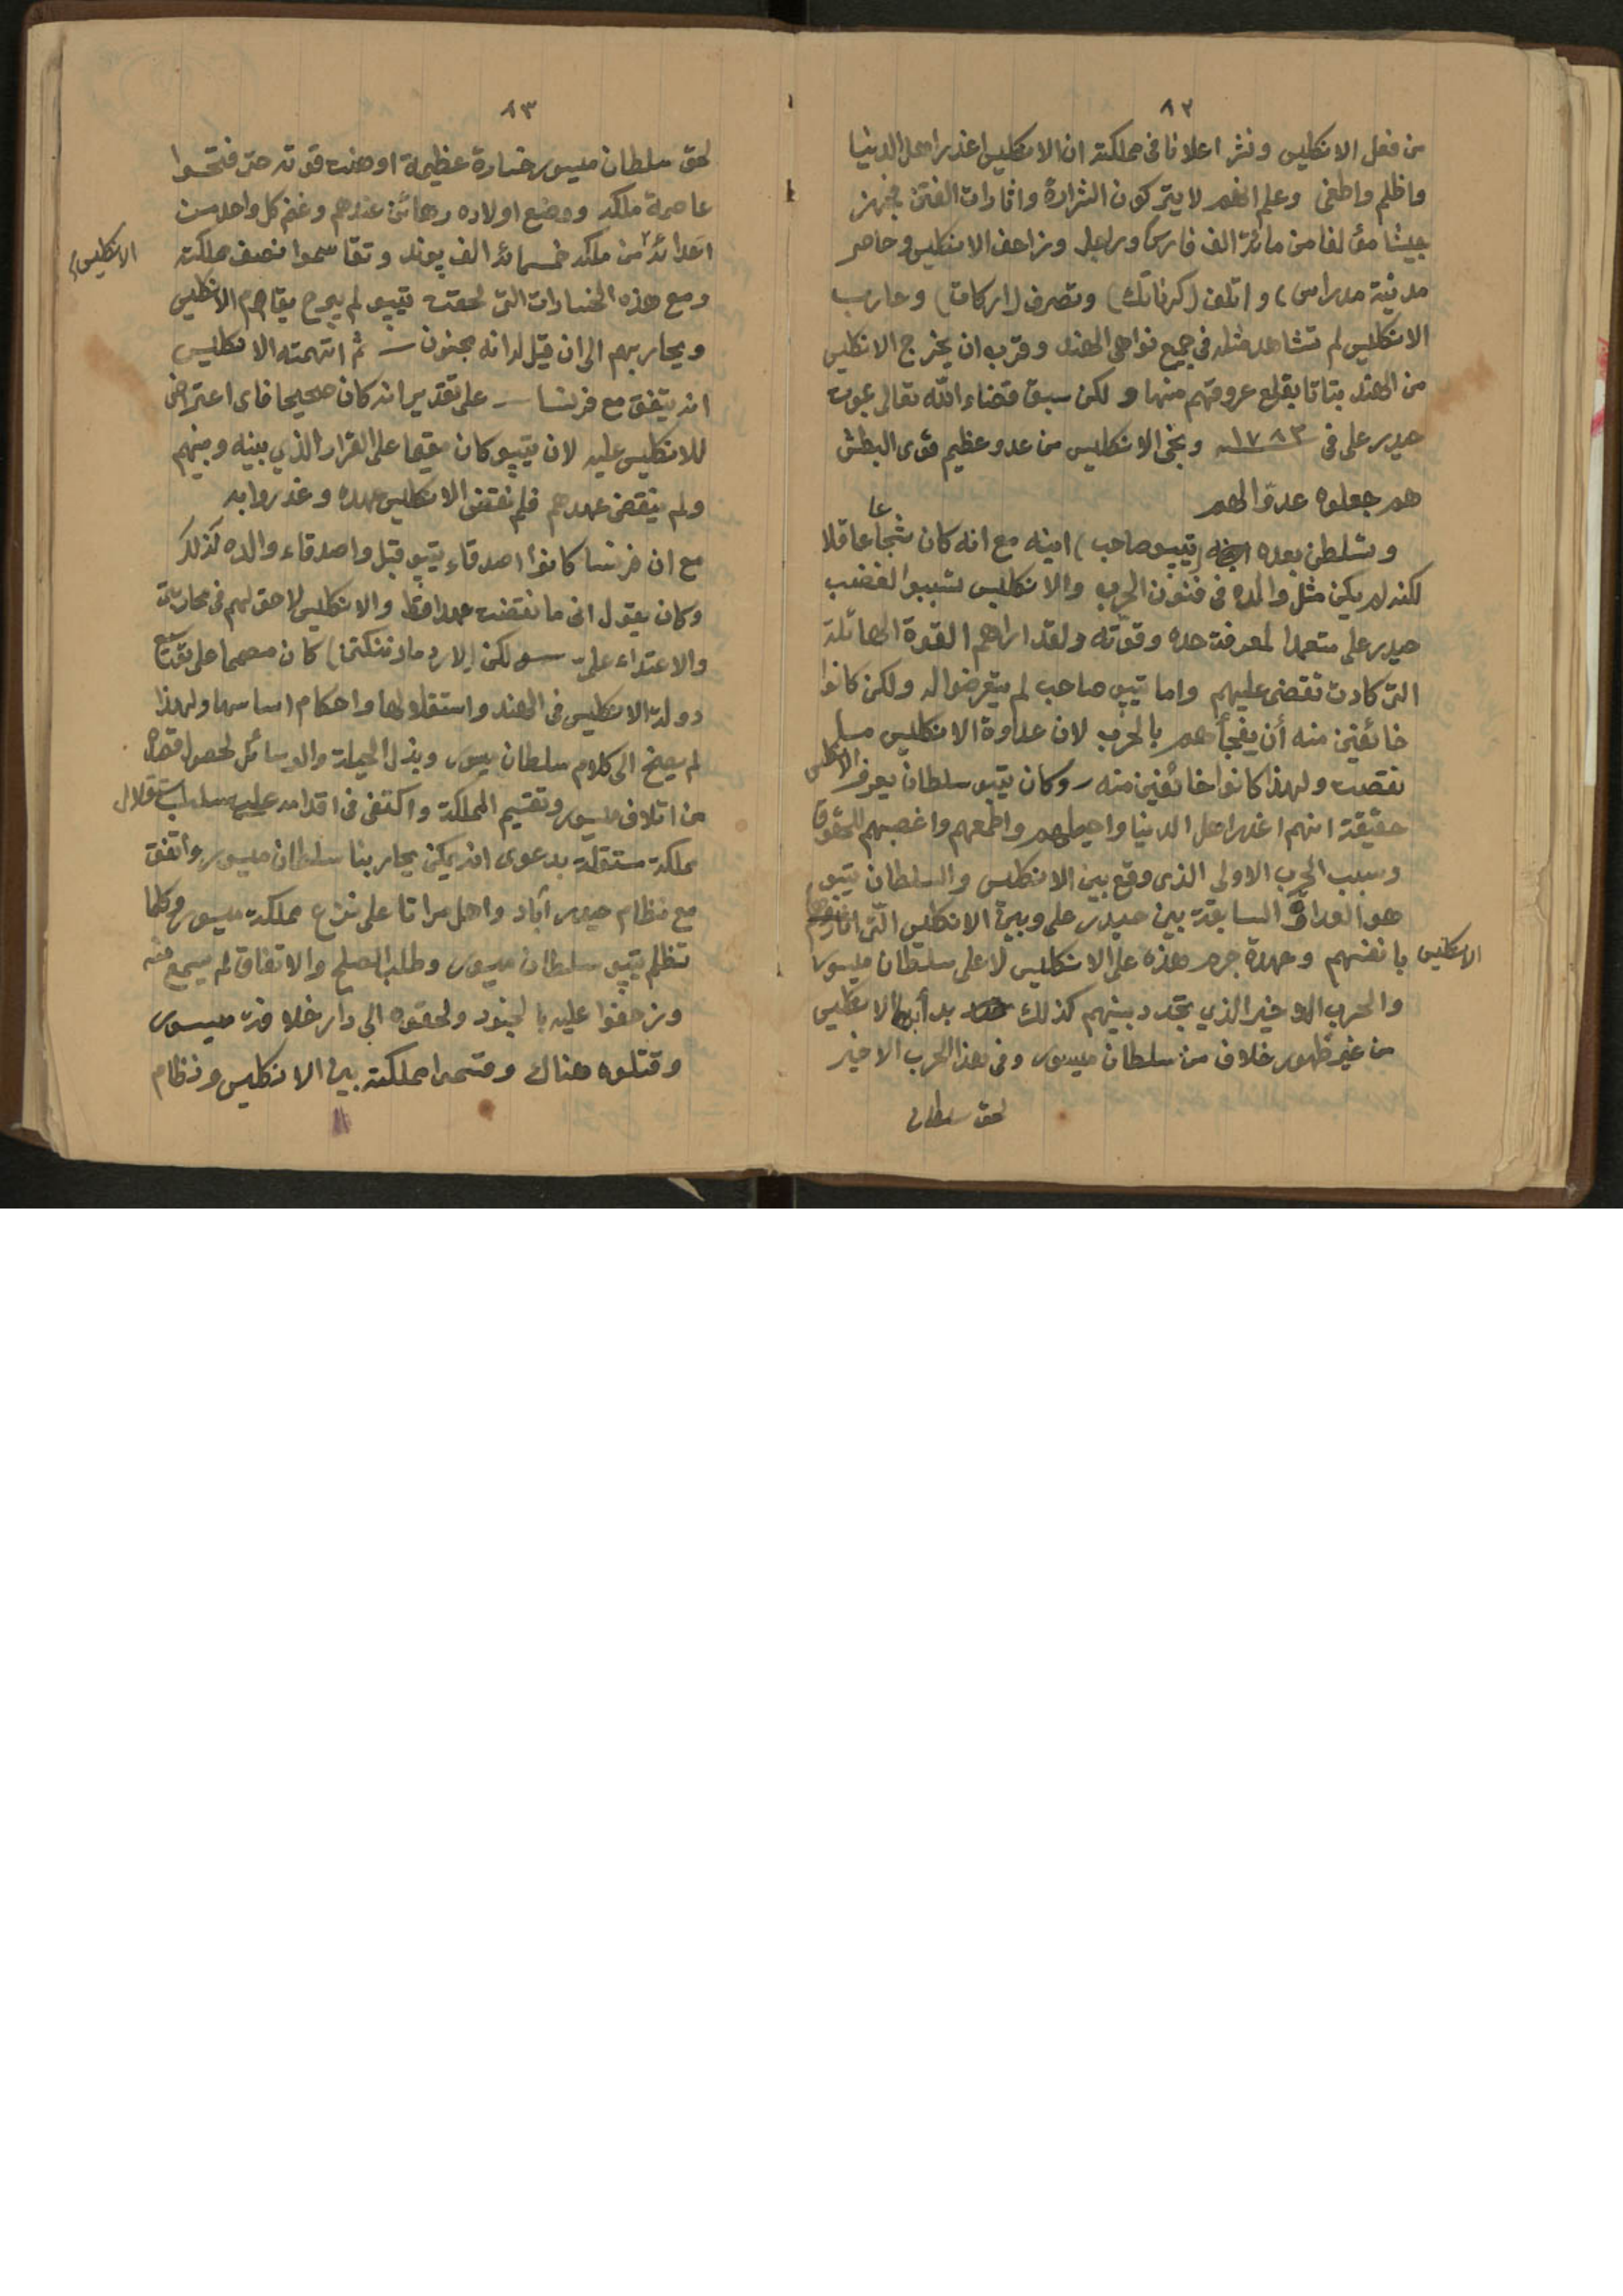 ٨٢
من فعل الانكليس ونشر اعلانا في مملكته ان الانكليس اغدر اهل الدنيا
واظلم واطغى وعلم انهم لا يتركون الشرارة واثارات الفتن فجهز
جيشا مؤلفا من مائة الف فارس وراجل وزاحف الانكليس وحاصر
مدينة مدراس) واتلف (كرناتك) وتصرف (اركات) وحارب
الانكليس لم تشاهد مثله في جميع نواحي الهند وقرب ان يخرج الانكليس
من الهند بتاتا بقلع عروقهم منها ولكن سبق قضاء الله تعالى بموت
حيدر على في ١٧٨٣ ونجى الانكليس من عدو عظيم قوى البطش
هم جعلوه عدوا لهم
وتسلطن بعده (تيپو صاحب) ابنه مع انه كان شجاعا عاقلا
لكنه لم يكن مثل والده في فنون الحرب والانكليس تسببوا لغضب
حيدر على متعمدا لمعرفة حده وقوته ولقد اراهم القوة الهائلة
التي كادت تقضى عليهم واما تيپو صاحب لم يتعرضوا له ولكن كانوا
خائفين منه أن يفجأهم بالحرب لان عداوة الانكليس
نقضت ولهذا كانوا خائفين منه - وكان تيپو سلطان يعرف الانكليس
حقيقة انهم اغدر اهل الدنيا واحيلهم واطمعهم واغصبهم للحقوق
وسبب الحرب الاولى الذى وقع بين الانكليس والسلطان تيپو
هو العداوة السابقة بين حيدر على وبين الانكليس التى اثارها
الانكليس بانفسهم وعهدة جرم هذه على الانكليس لا على سلطان ميسور
والحرب الاخير الذي تجدد بينهم كذلك بدأ بها الانكليس
من غير ظهور خلاف من سلطان ميسور وفي هذا الحرب الاخير
لحق سلطان
٨٣
لحق سلطان ميسور خسارة عظيمة اوهنت قوته حتى فتحوا
عاصمة ملكه ووضع اولاده رهائن عندهم وغنم كل واحد من
اعدائه من ملكه خمسمائة الف پوند وتقاسموا نصف مملكته
الانكليس
ومع هذه الخسارات التى لحقت تيپو لم يبرح يقاوم الانكليس
ويحاربهم الى ان قيل له انه مجنون - ثم اتهمته الانكليس
انه يتفق مع فرنسا - على تقدير انه كان صحيحا فاى اعتراض
للانكليس عليه لان تيپو كان مقيما على القرار الذي بينه وبينهم
ولم ينقض عهدهم فلم نقض الانكليس عهده وغدروا به
مع ان فرنسا كانوا اصدقاء تيپو قبل واصدقاء والده كذلك
وكان يقول انى ما نقضت عهدا قط والانكليس لا حق لهم في محاربتى
والاعتداء علىّ - ولكن (لارد مادننكتن) كان مصمما على توسيع
دولة الانكليس في الهند واستقلالها واحكام اساسها ولهذا
لم يصخ الى كلام سلطان ميسور وبذل الحيلة والوسائل لحصول قصده
من اتلاف ميسور وتقسيم المملكة واكتفى في اقدامه على سلب استقلال
مملكة مستقلة بدعوى انه يمكن يحاربنا سلطان ميسور واتفق
مع نظام حيدر آباد واهل مراتا على نزع مملكة ميسور وكلما
تظلم تيپو سلطان ميسور وطلب الصلح والاتفاق لم يسمع منه
وزحفوا عليه بالجنود ولحقوه الى دار خلافة ميسور
وقتلوه هناك وقسموا مملكته بين الانكليس ونظام